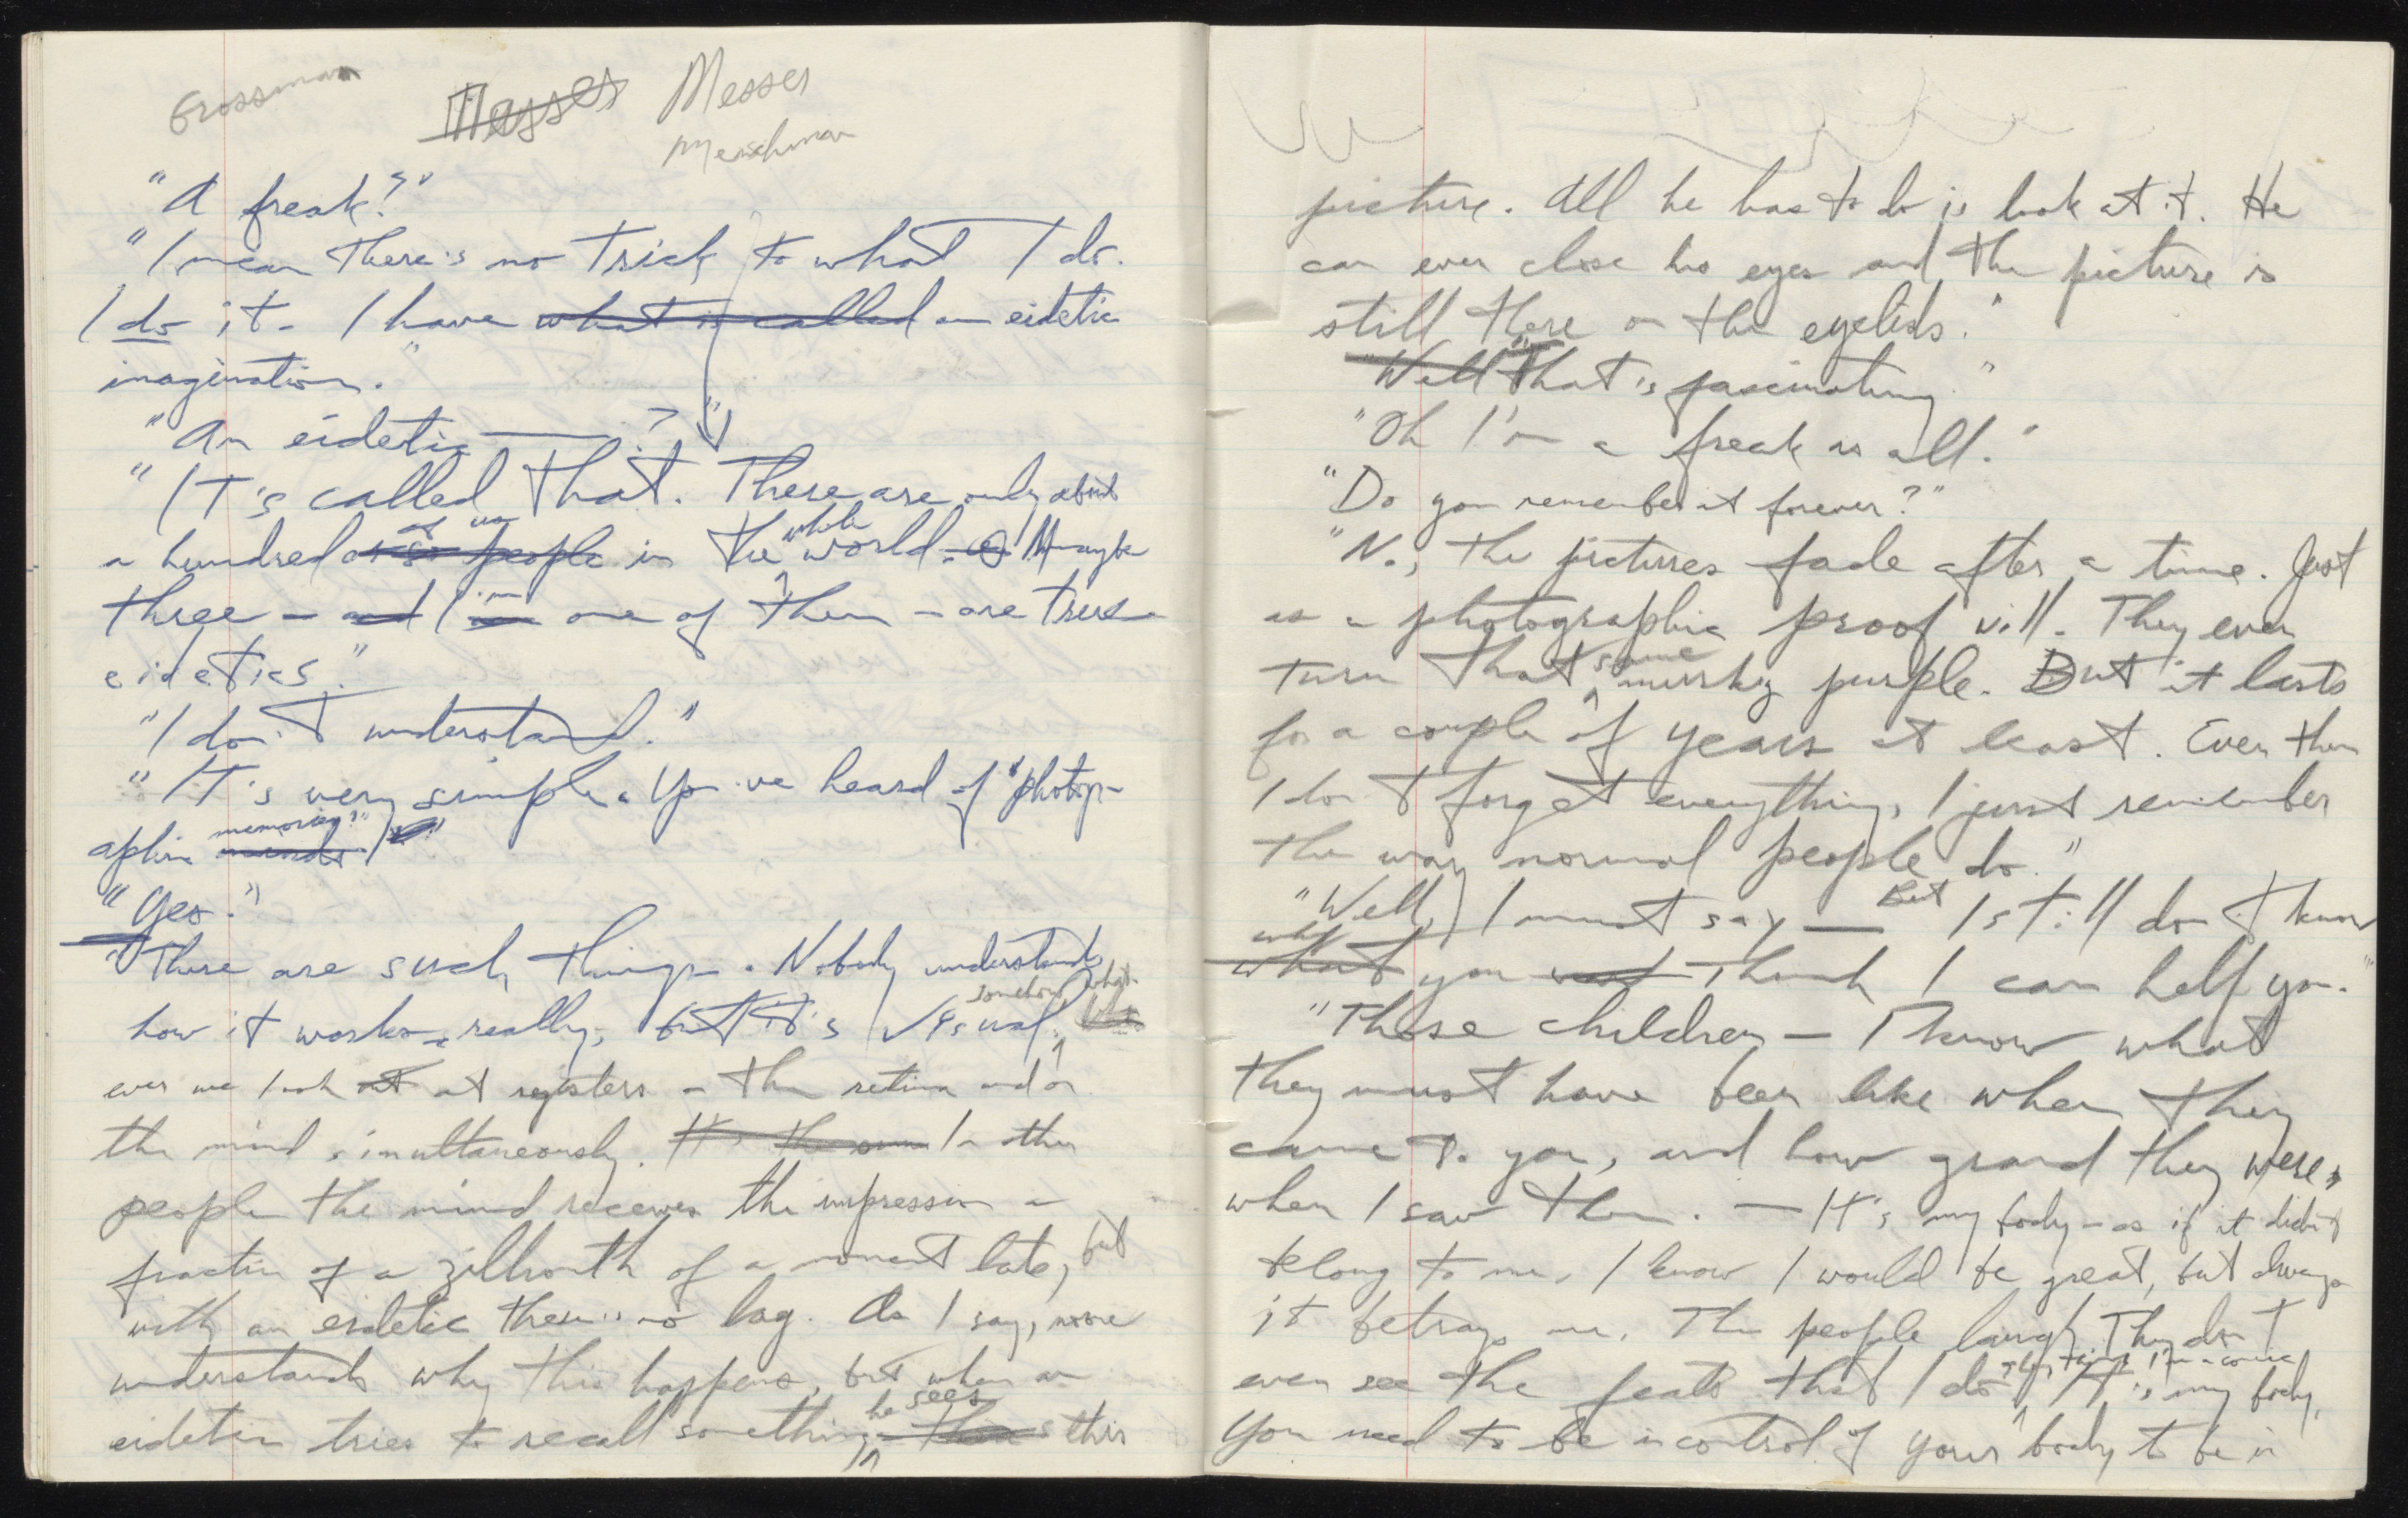 Grossman
Messer Messer
Menschman
"A freak?"
"I mean there's no trick to what I do.
I do it. I have what is called an eidetic
imagination."
"An eidetic —— ?"
"It's called that. There are only about
of us whole
a hundred or so people in the world. Maybe
I'm
three — and I am one of them — are true
eidetics."
"I don't understand."
"It's very simple. You've heard of "photogr-
memories?"
aphic minds
"Yes."
"There are such things. Nobody understands
somehow what-
how it works, really, but it's visual.
ever we look at at registers on the retina and on
the mind simultaneously. It's the In other
people the mind receives the impression a
fraction of a zillionth of a moment late, but
with an eidetic there is no lag. As I say, none
understands why this happens, but when an
he sees
eidetic tries to recall something this
picture. All he has to do is look at it. He
can even close his eyes and the picture is
still there on the eyelids."
"Well That is fascinating."
"Oh I'm a freak is all."
"Do you remember it forever?"
"No, the pictures fade after a time. Just
as a photographic proof will. They even
same
turn that murky purple. But it lasts
for a couple of years at least. Even then
I don't forget everything, I just remember
the way normal people do."
But
"Well, I must say — I still don't know
why
what you want think I can help you."
"Those children — I know what
they must have been like when they
came to you, and how grand they were,
when I saw them. — It's my body — as if it didn't
belong to me. I know I would be great, but always
it betrays me. The people laugh. They don't
they think I'm a comic
even see the feats that I do. It's my body,
You need to be in control of your body to be in